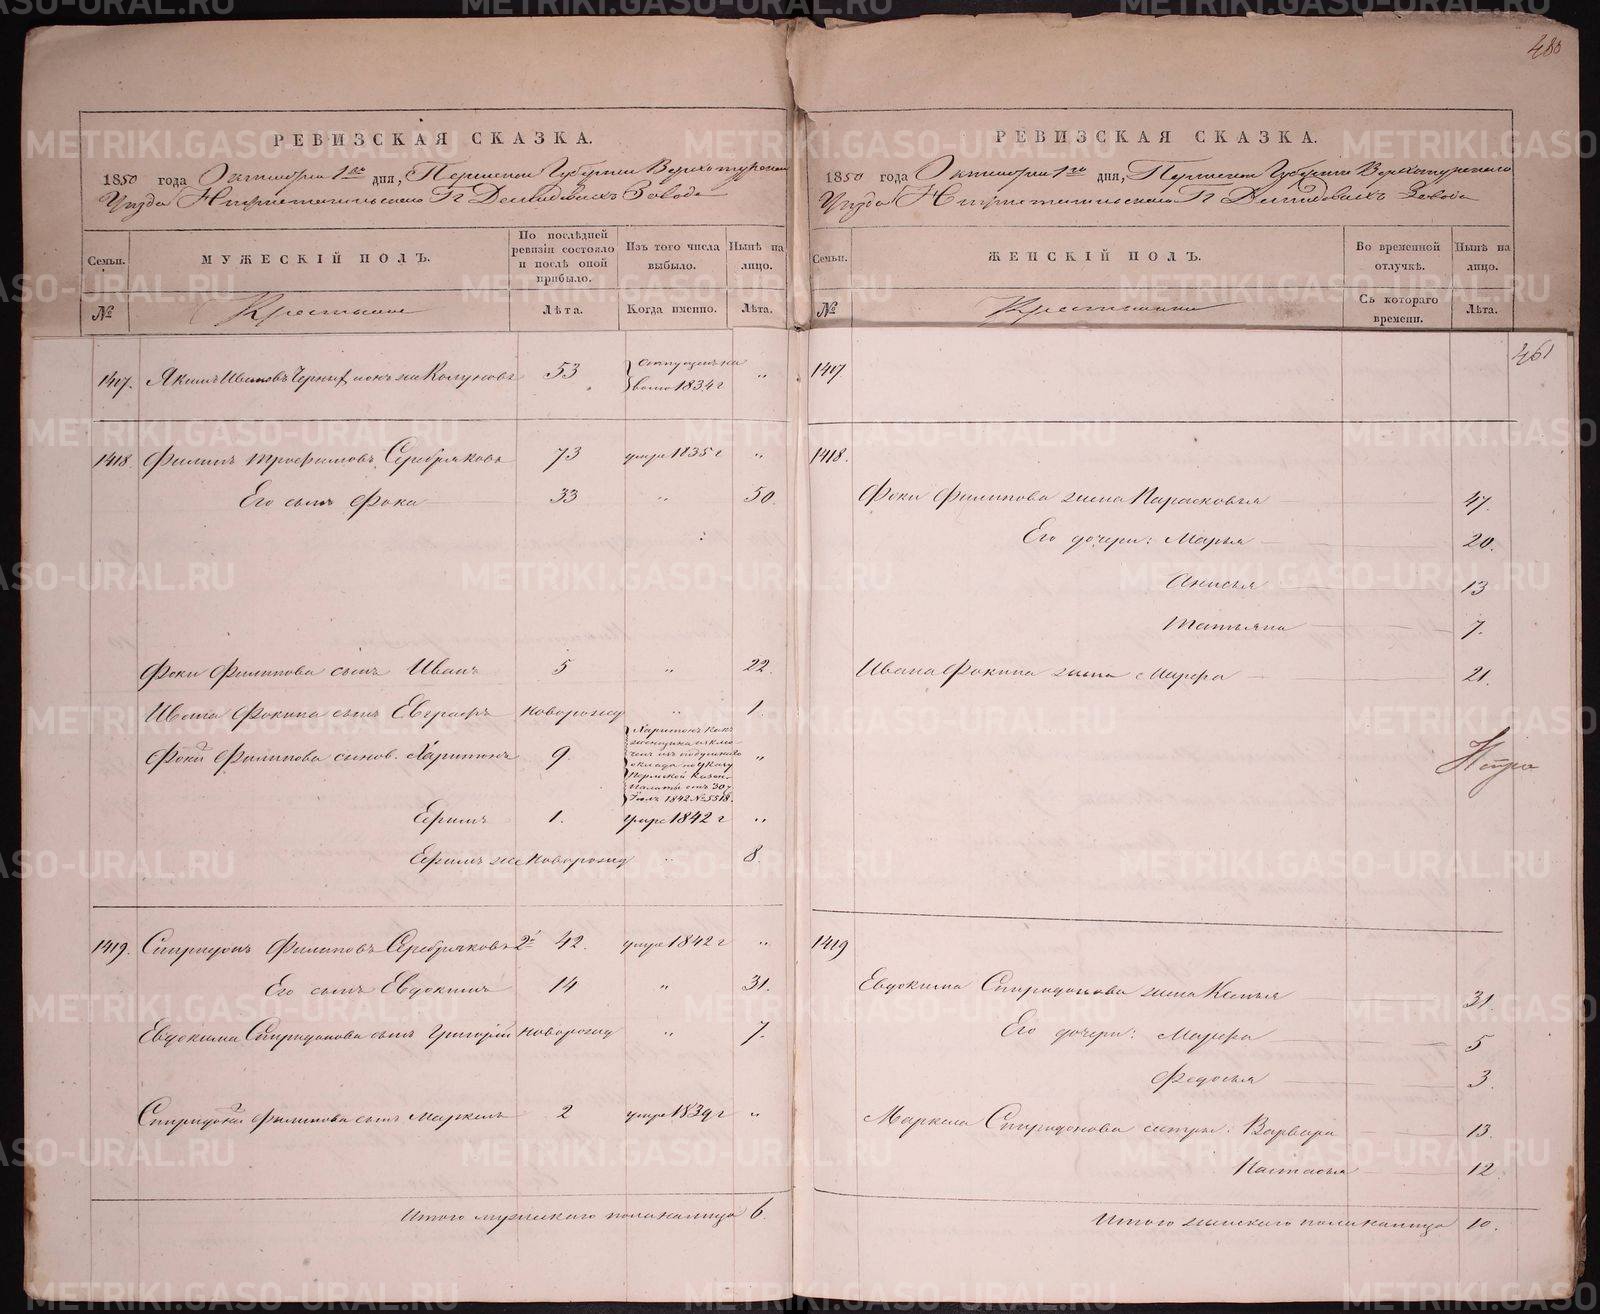 480
РЕВИЗСКАЯ СКАЗКА.
1850 года Октября 1го дня, Пермской Губернии Верхотурскаго
Уезда Нижнетагильскаго Гг Демидовыхъ Завода
Семьи.
МУЖЕСКІЙ ПОЛЪ.
По послѣдней ревизіи состояло и послѣ оной прибыло.
Изъ того числа выбыло.
Нынѣ на лицо.
№
Крестьяне
Лѣта.
Когда именно.
Лѣта.
1417. Якимъ Ивановъ Черных онъ же Колуновъ 53 Отпущенъ на волю 1834 г „
1418. Филипъ Трофимовъ Серебряковъ 73 умре 1835 г „
Его сынъ Фока 33 „ 50.
Фоки Филипова сынъ Иванъ 5 „ 22.
Ивана Фокина сынъ Евграфъ новорожд „ 1.
Фоки Филипова сынов. Харитонъ 9 „
Харитонъ какъ
исклю-
ченъ изъ подушнаго
оклада по Указу
Пермской Казен.
Палаты отъ 30
Іюля 1842 № 5518.
Ефимъ 1. умре 1842 г „
Ефимъ же новорожд „ 8.
1419. Спиридонъ Филиповъ Серебряковъ 2й 42. умре 1842 г „
Его сынъ Евдокимъ 14 „ 31.
Евдокима Спиридонова сынъ Григорій новорожд „ 7.
Спиридона Филипова сынъ Маркелъ 2 умре 1839 г „
Итого мужескаго пола налицо 6.
РЕВИЗСКАЯ СКАЗКА.
1850 года Октября 1го дня, Пермской Губернии Верхотурскаго
Уезда Нижнетагильскаго Гг Демидовыхъ Завода
Семьи.
ЖЕНСКІЙ ПОЛЪ.
Во временной отлучкѣ.
Нынѣ на лицо.
№
Крестьянки
Съ котораго времени.
Лѣта.
461
1417.
1418.
Фоки Филипова жена Парасковья 47.
Его дочери: Марья 20.
Анисья 13
Татьяна 7.
Ивана Фокина жена Марфа 21.
1419
Евдокима Спиридонова жена Ксенья 31.
Его дочери: Марфа 5
Федосья 3.
Маркела Спиридонова сестры: Варвара 13.
Настасья 12
Итого женскаго пола налицо 10.
METRIKI.GASO-URAL.RU